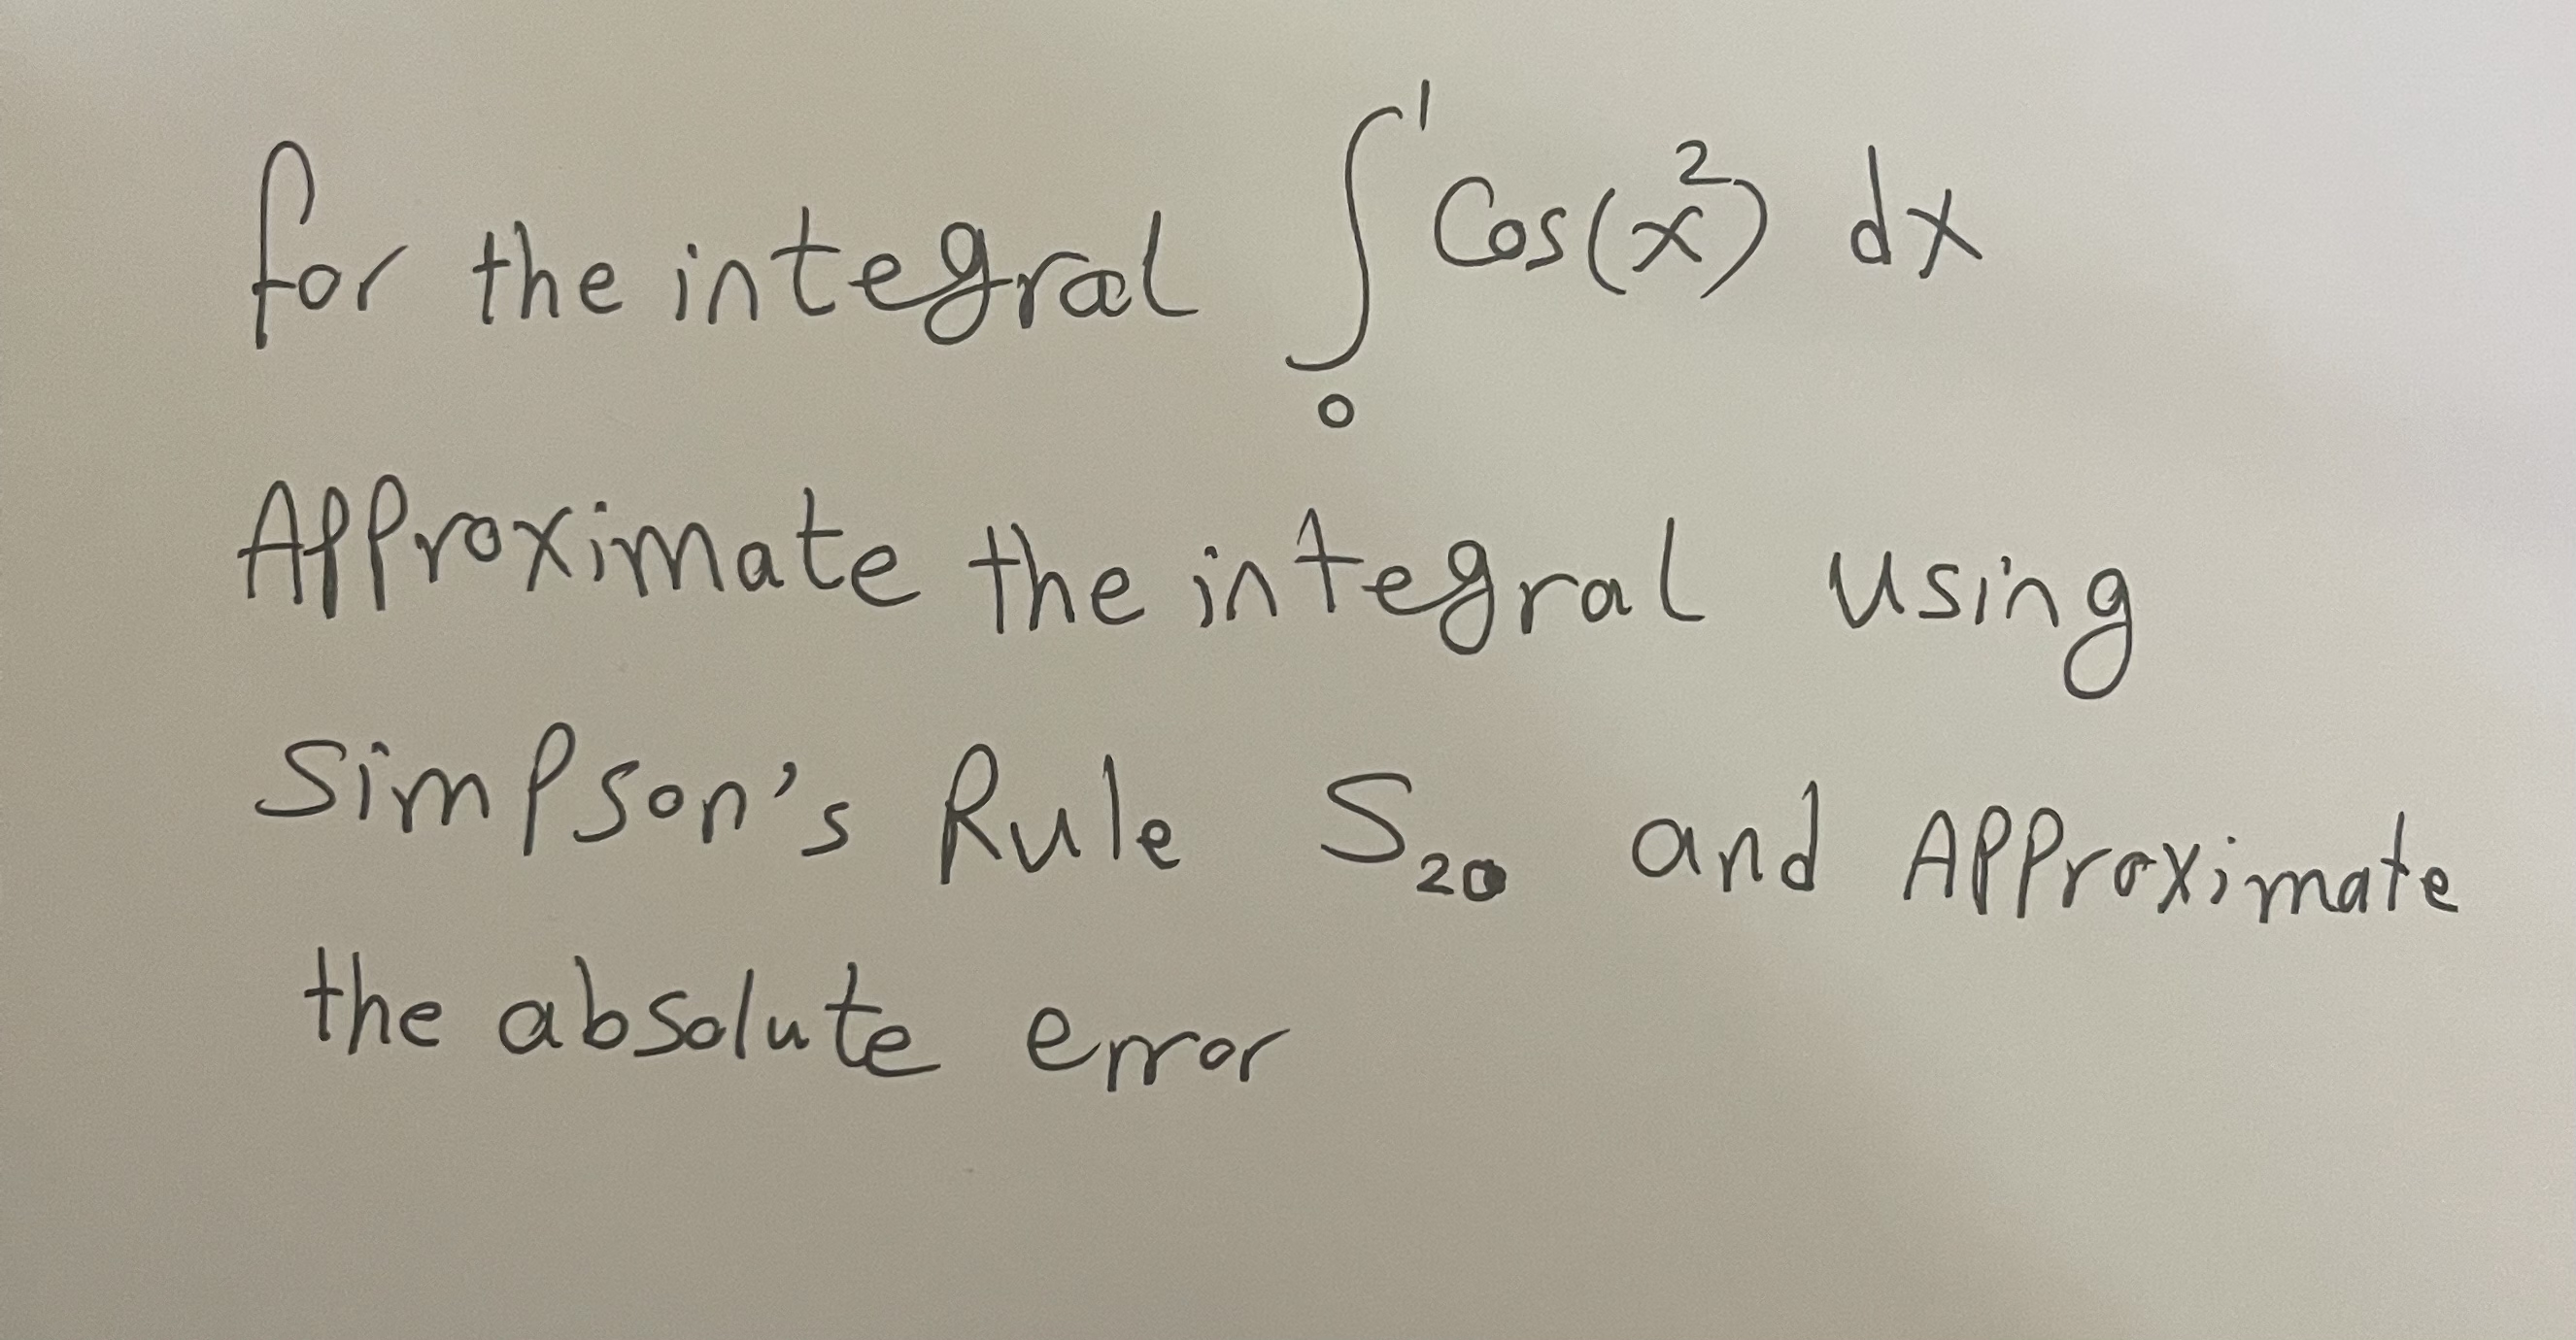 for the integral ∫₀¹ Cos(x²) dx
Approximate the integral using
Simpson's Rule S₂₀ and Approximate
the absolute error